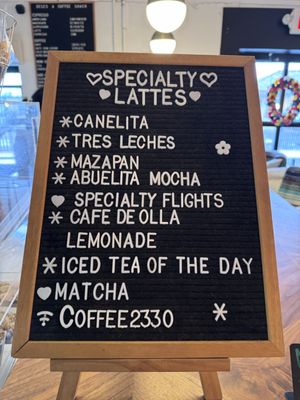 SPECIALTY
LATTES
CANELITA
TRES LECHES
MAZAPAN
ABUELITA MOCHA
SPECIALTY FLIGHTS
CAFE DE OLLA
LEMONADE
ICED TEA OF THE DAY
MATCHA
COFFEE2330